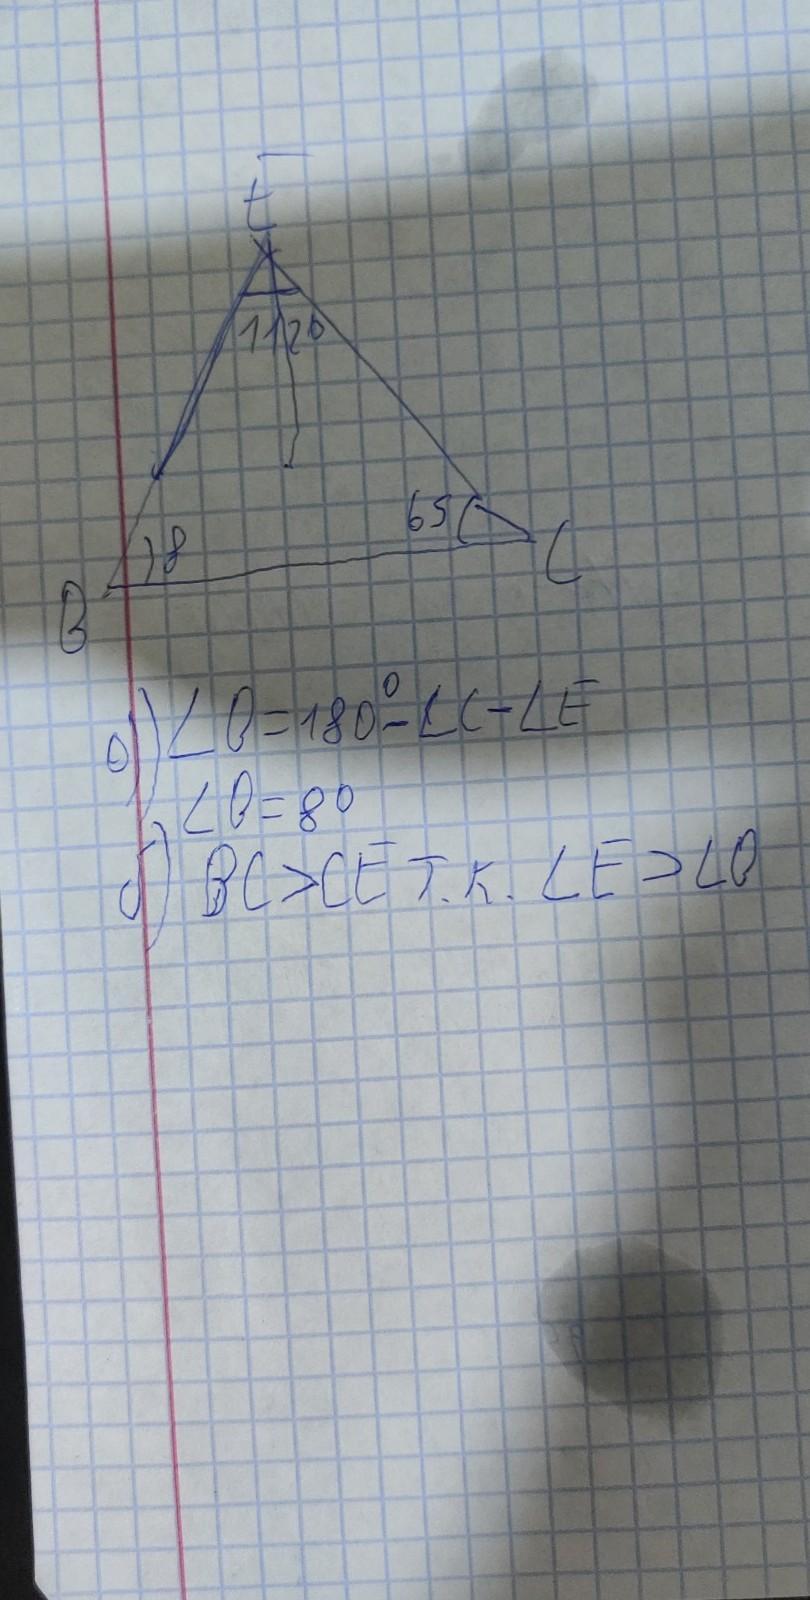 E
112°
8
65
C
B
а) ∠B=180°-∠C-∠E
∠B=8°
б) BC>CE т.к. ∠E>∠B